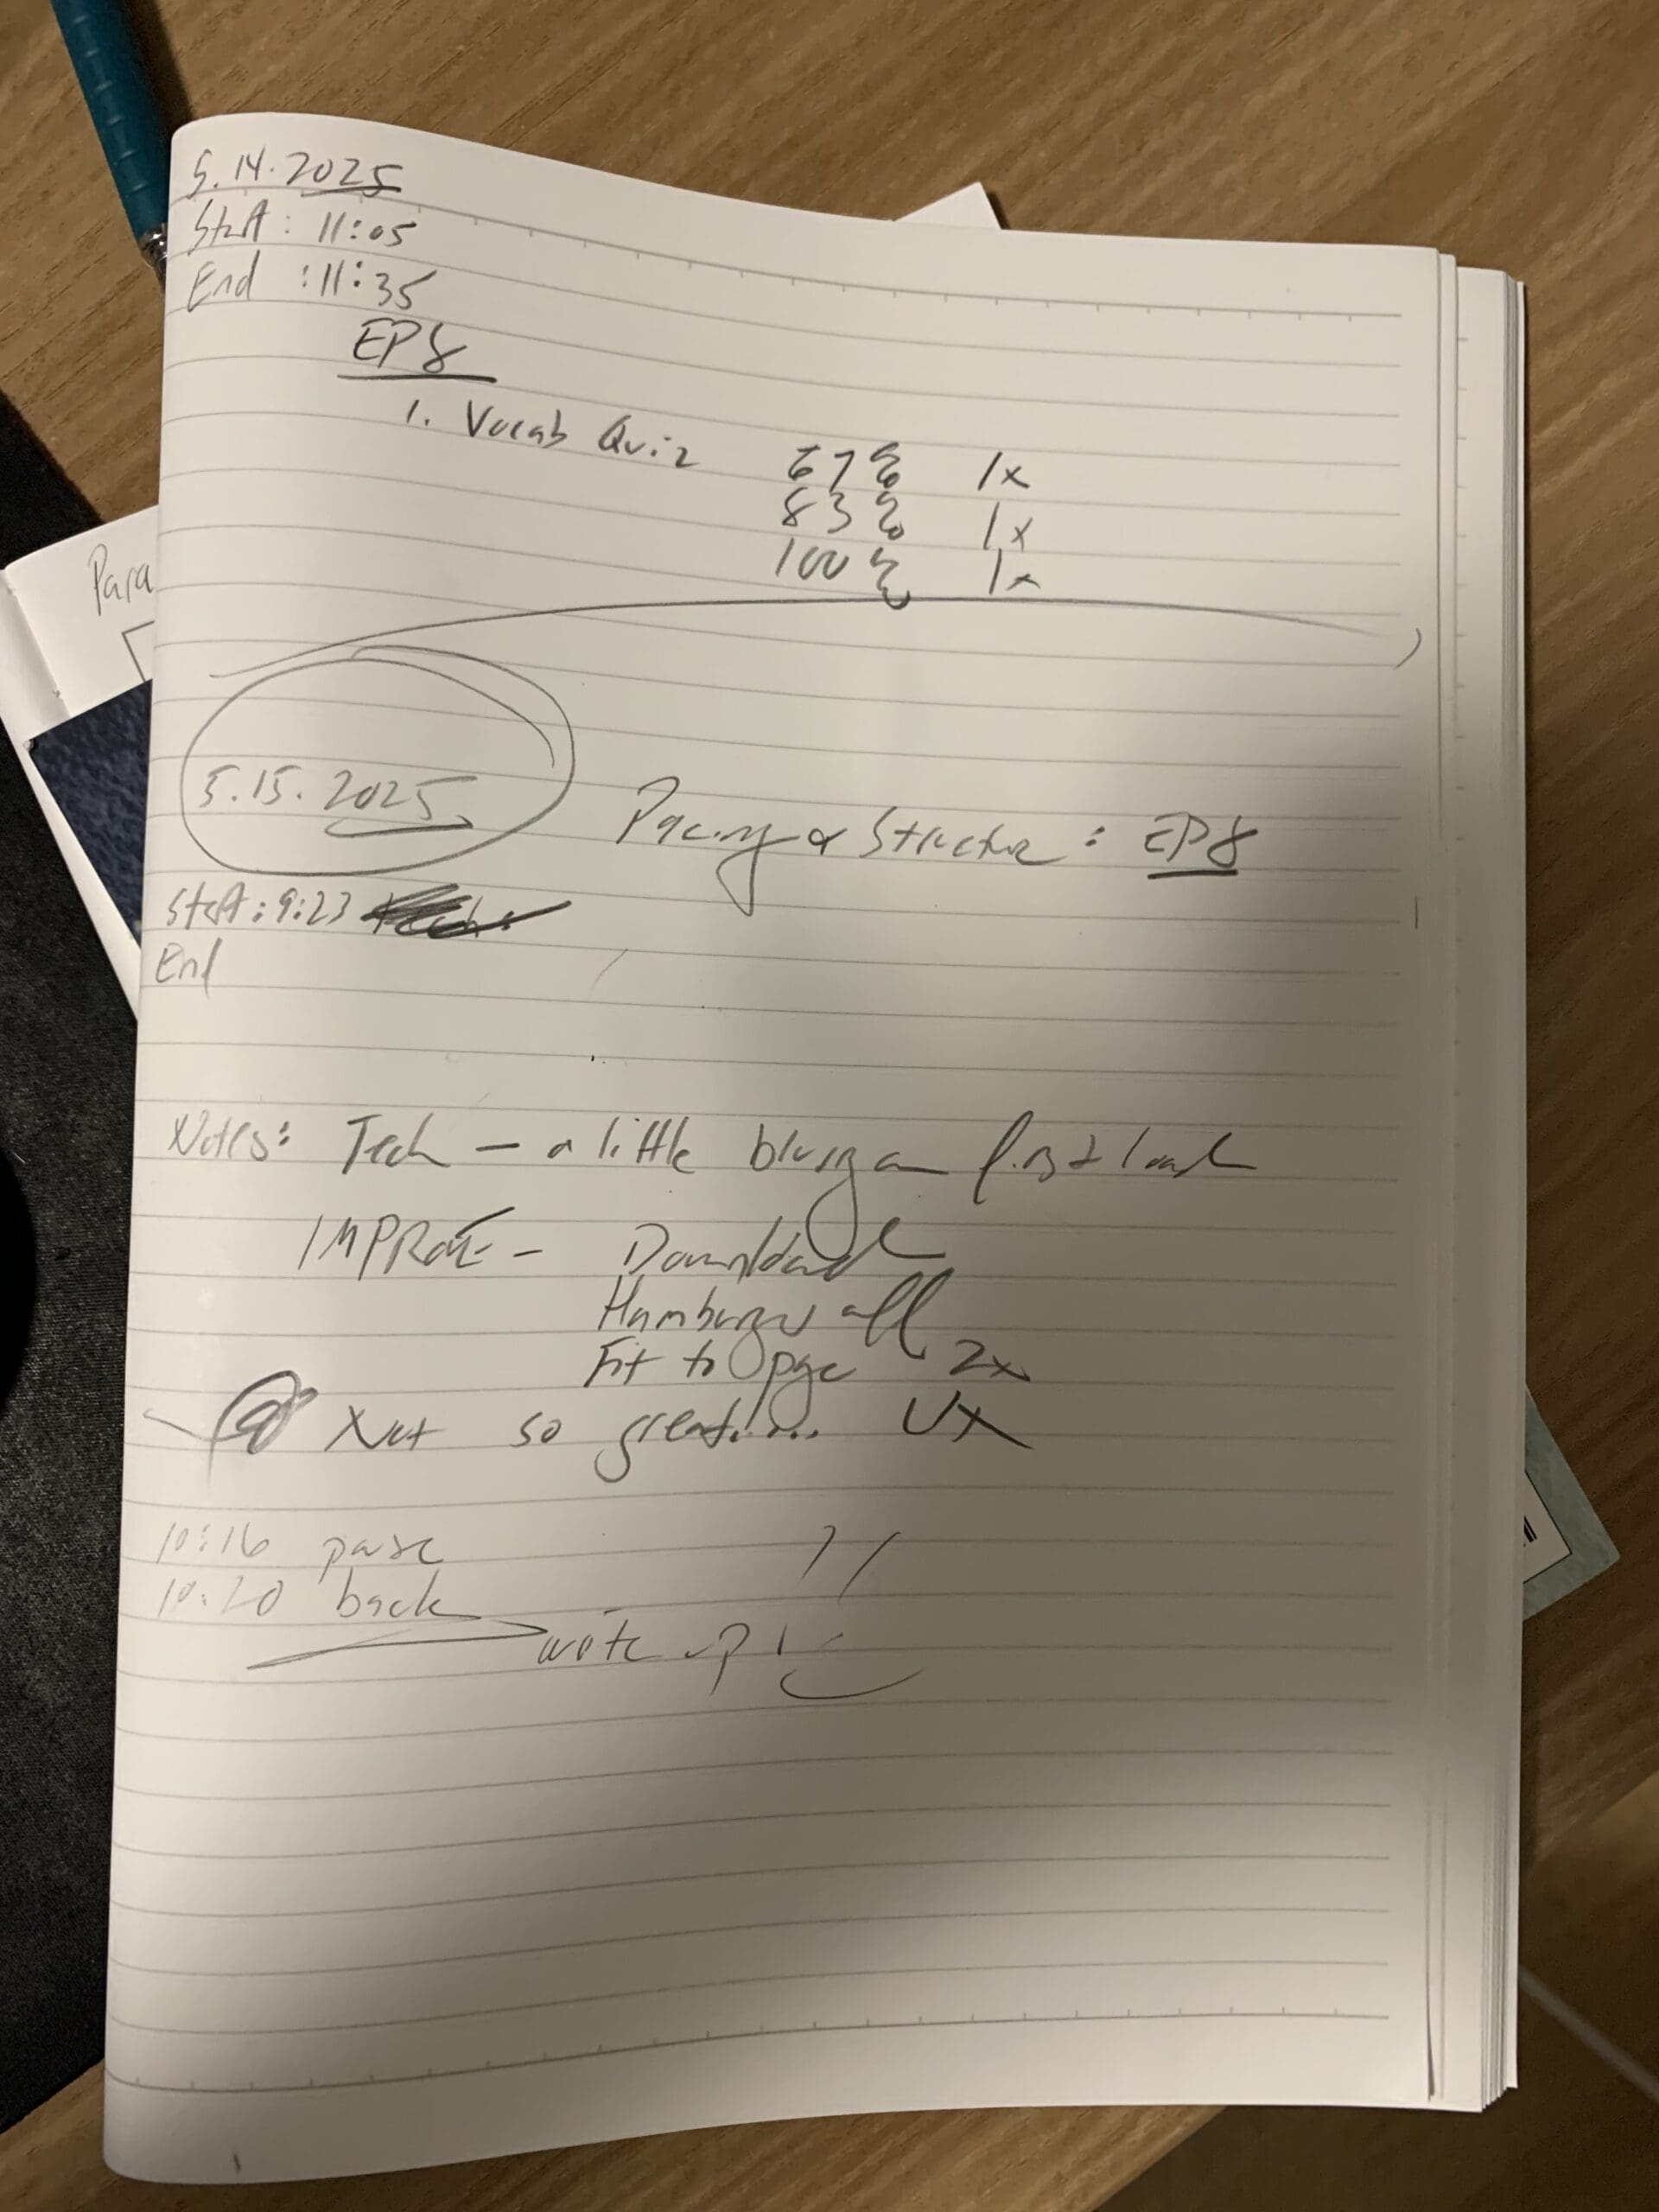 5.14.2025
Start: 11:05
End : 11:35
EP8
1. Vocab Quiz 67% 1x
83% 1x
100% 1x
Para
5.15.2025 Pacing & Structure: EP8
Start: 9:23
End
Notes: Tech - a little blurry on first load
IMPROVE - Download
Hamburger all
Fit to page 2x
Not so great.... UX
10:16 pause
10:20 back
write up